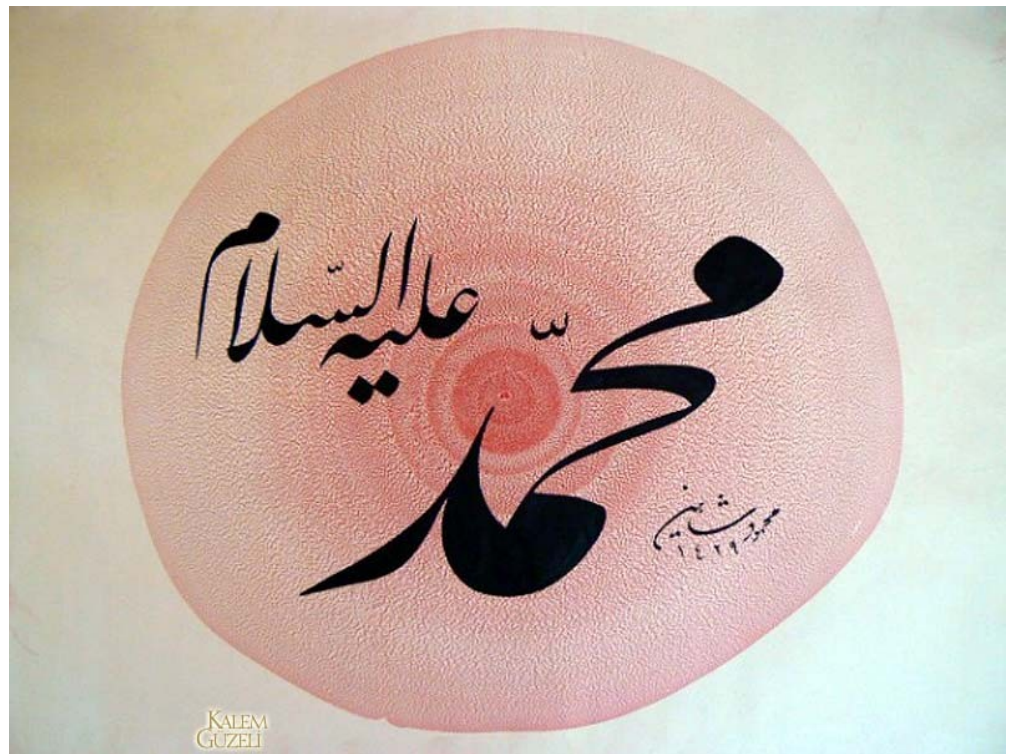 محمّد
عليه السّلام
محمود شاهين
١٤٢٩
KALEM
GÜZELİ